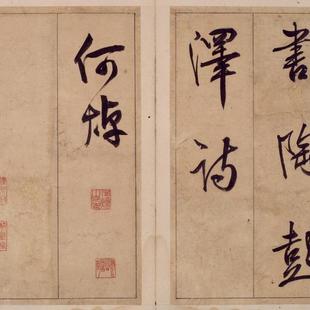 書陶彭
澤詩
何焯